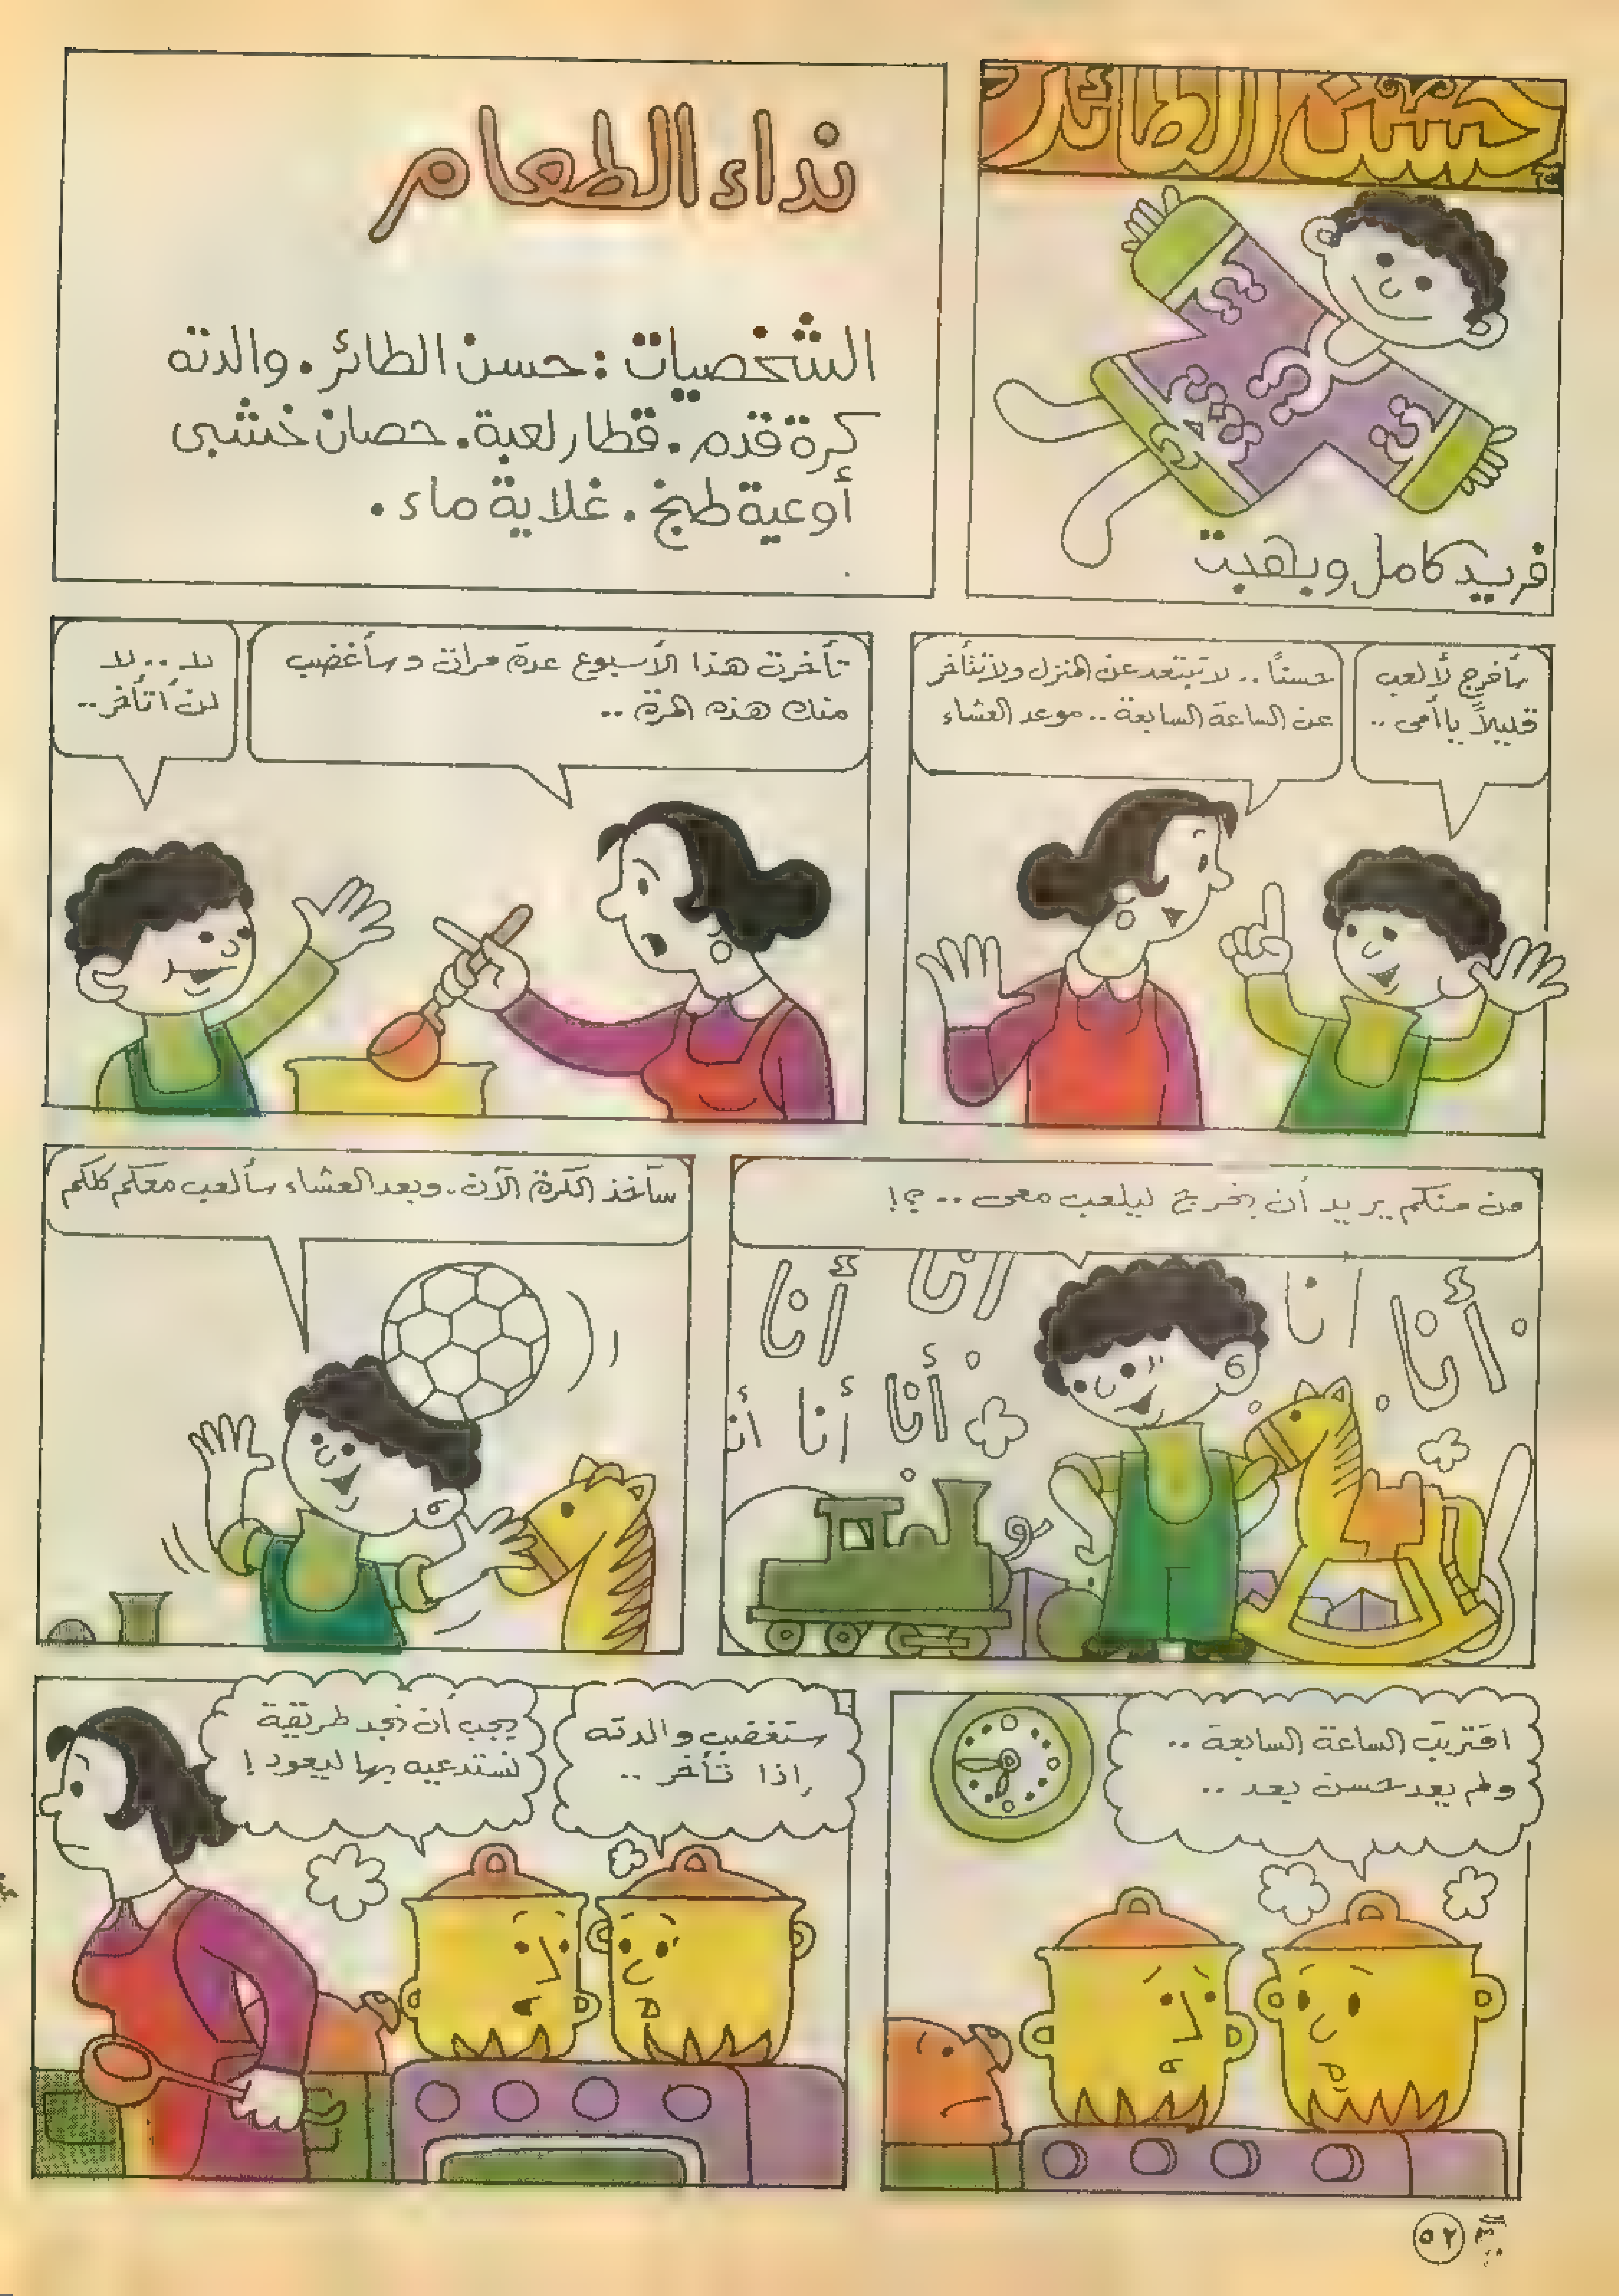 حسن الطائر
فريد كامل وبهجت
نداء الطعام
الشخصيات : حسن الطائر . والدته
كرة قدم . قطار لعبة . حصان خشبى
أوعية طبخ . غلاية ماء .
سأخرج لألعب
قليلاً يا أمى ..
حسناً .. لا تبتعد عن المنزل ولا تتأخر
عن الساعة السابعة .. موعد العشاء
تأخرت هذا الأسبوع عدة مرات وسأغضب
منك هذه المرة ..
لا .. لا
لن أتأخر ..
من منكم يريد أن يخرج ليلعب معى .. ؟!
أنا
انا
أنا
أنا
أنا
أنا
أنا
سآخذ الكرة الآن . وبعد العشاء سألعب معكم كلكم
اقتربت الساعة السابعة ..
ولم يعد حسن بعد ..
ستغضب والدته
إذا تأخر ..
يجب أن نجد طريقة
نستدعيه بها ليعود !
٥٢